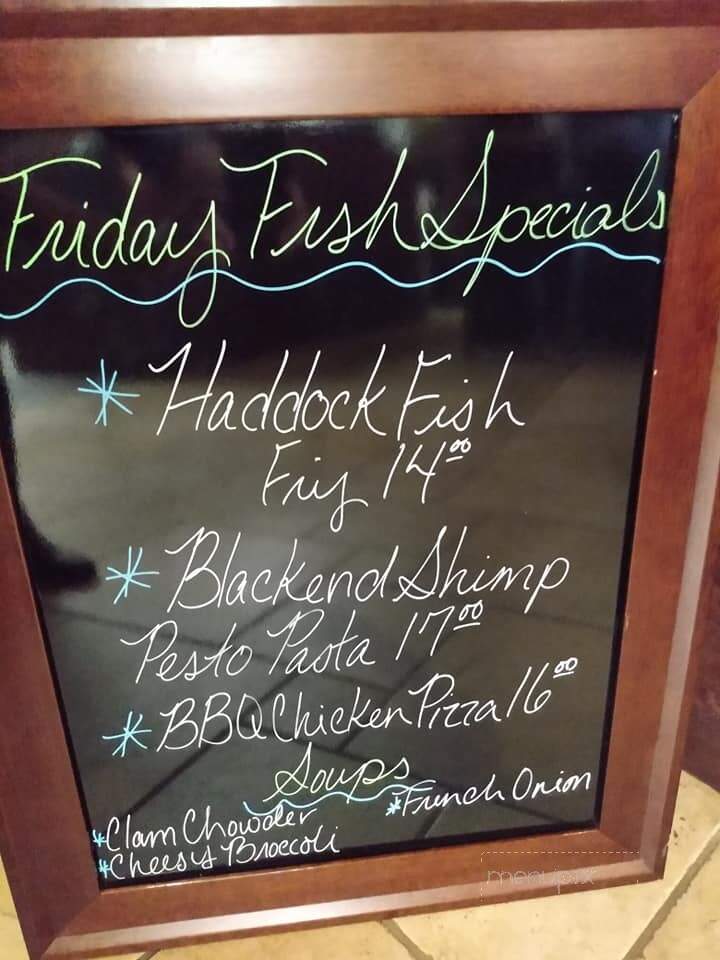 Friday Fish Specials
* Haddock Fish
Fry 14⁰⁰
* Blackend Shimp
Pesto Pasta 17⁰⁰
* BBQ Chicken Pizza 16⁰⁰
Soups
* Clam Chowder
* French Onion
* Cheesy Broccoli
menupix